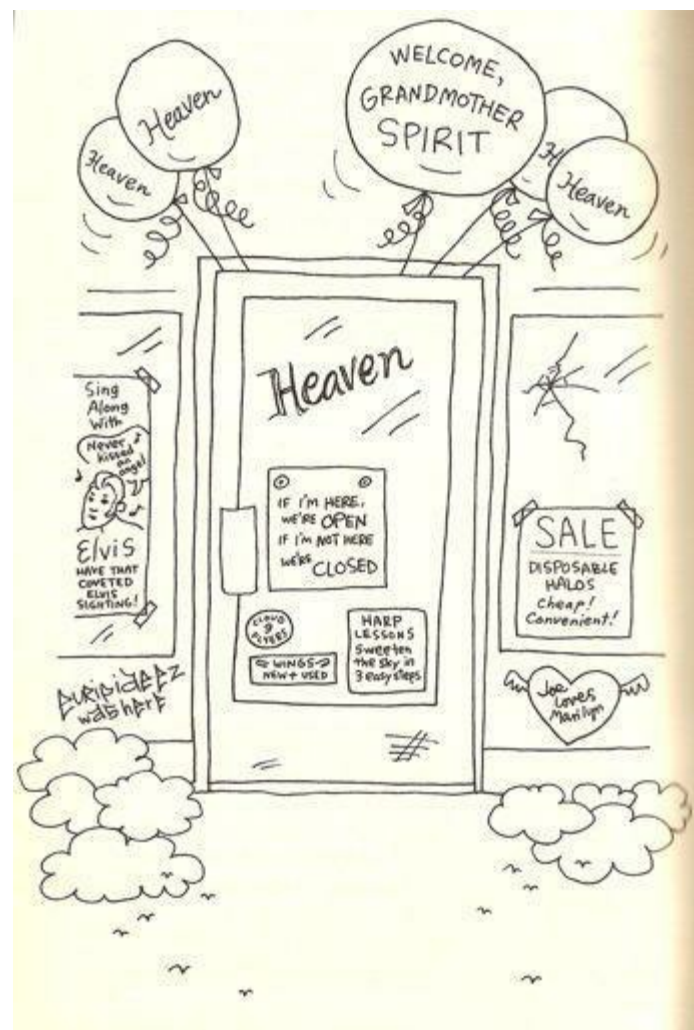 Heaven
Heaven
WELCOME,
GRANDMOTHER
SPIRIT
Heaven
Heaven
Sing
Along
With
Never
kissed
an
angel
Elvis
HAVE THAT
COVETED
ELVIS
SIGHTING!
IF I'M HERE,
WE'RE OPEN
IF I'M NOT HERE
WE'RE CLOSED
CLOUD
9
FLYERS
WINGS
NEW + USED
HARP
LESSONS
Sweeten
the sky in
3 easy steps
SALE
DISPOSABLE
HALOS
Cheap!
Convenient!
EURipidEEZ
was here
Joe
Loves
Marilyn